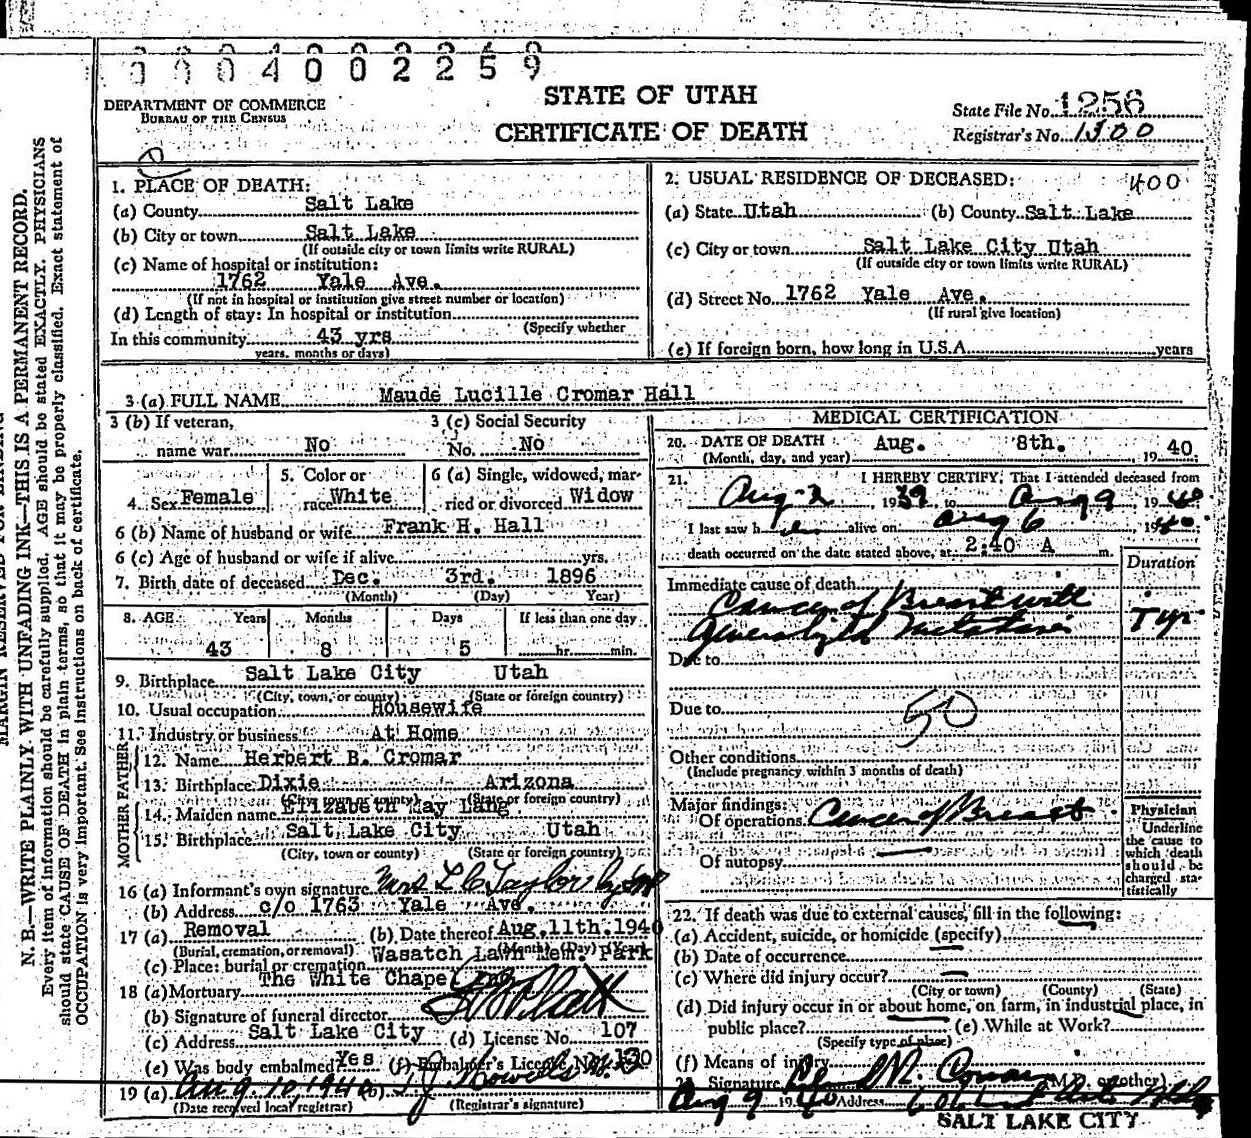 0004002259
DEPARTMENT OF COMMERCE
BUREAU OF THE CENSUS
STATE OF UTAH
CERTIFICATE OF DEATH
State File No. 1256
Registrar's No. 1300
MARGIN RESERVED FOR BINDING
N. B.—WRITE PLAINLY, WITH UNFADING INK—THIS IS A PERMANENT RECORD.
Every item of information should be carefully supplied. AGE should be stated EXACTLY. PHYSICIANS
should state CAUSE OF DEATH in plain terms, so that it may be properly classified. Exact statement of
OCCUPATION is very important. See instructions on back of certificate.
1. PLACE OF DEATH:
(a) County Salt Lake
(b) City or town Salt Lake
(If outside city or town limits write RURAL)
(c) Name of hospital or institution:
1762 Yale Ave.
(If not in hospital or institution give street number or location)
(d) Length of stay: In hospital or institution
(Specify whether
In this community 43 yrs
years, months or days)
2. USUAL RESIDENCE OF DECEASED: 400
(a) State Utah (b) County Salt Lake
(c) City or town Salt Lake City Utah
(If outside city or town limits write RURAL)
(d) Street No. 1762 Yale Ave.
(If rural give location)
(e) If foreign born, how long in U.S.A. years
3 (a) FULL NAME Maude Lucille Cromar Hall
3 (b) If veteran,
name war No
3 (c) Social Security
No. No
4. Sex Female
5. Color or
race White
6 (a) Single, widowed, mar-
ried or divorced Widow
6 (b) Name of husband or wife Frank H. Hall
6 (c) Age of husband or wife if alive yrs.
7. Birth date of deceased Dec. 3rd. 1896
(Month) (Day) Year)
8. AGE Years Months Days If less than one day
43 8 5 hr. min.
9. Birthplace Salt Lake City Utah
(City, town, or county) (State or foreign country)
10. Usual occupation Housewife
11. Industry or business At Home
FATHER
12. Name Herbert B. Cromar
13. Birthplace Dixie Arizona
(City, town or county) (State or foreign country)
MOTHER
14. Maiden name Elizabeth May Lang
15. Birthplace Salt Lake City Utah
(City, town or county) (State or foreign country)
16 (a) Informant's own signature Mrs L C Taylor by
(b) Address c/o 1763 Yale Ave.
17 (a) Removal (b) Date thereof Aug. 11th. 1940
(Burial, cremation, or removal) (Month) (Day) (Year)
(c) Place: burial or cremation Wasatch Lawn Mem. Park
18 (a) Mortuary The White Chapel
(b) Signature of funeral director
(c) Address Salt Lake City (d) License No. 107
(e) Was body embalmed? Yes (f) Embalmer's License No. 130
19 (a) Aug. 10, 1940 (b)
(Date received local registrar) (Registrar's signature)
MEDICAL CERTIFICATION
20. DATE OF DEATH Aug. 8th. 19 40
(Month, day, and year)
21. I HEREBY CERTIFY, That I attended deceased from
Aug 2, 1939, to Aug 9, 1940
I last saw her alive on Aug 6, 1940
death occurred on the date stated above, at 2:40 A m.
Duration
Immediate cause of death
Cancer of Breast with
Generalized Metastasis
1 yr
Due to
Due to
50
Other conditions
(Include pregnancy within 3 months of death)
Major findings:
Of operations Cancer of Breast
Of autopsy
Physician
Underline
the cause to
which death
should be
charged sta-
tistically
22. If death was due to external causes, fill in the following:
(a) Accident, suicide, or homicide (specify)
(b) Date of occurrence
(c) Where did injury occur?
(City or town) (County) (State)
(d) Did injury occur in or about home, on farm, in industrial place, in
public place? (e) While at Work?
(Specify type of place)
(f) Means of injury
Signature (M.D. or other)
Aug 9 1940 Address
SALT LAKE CITY